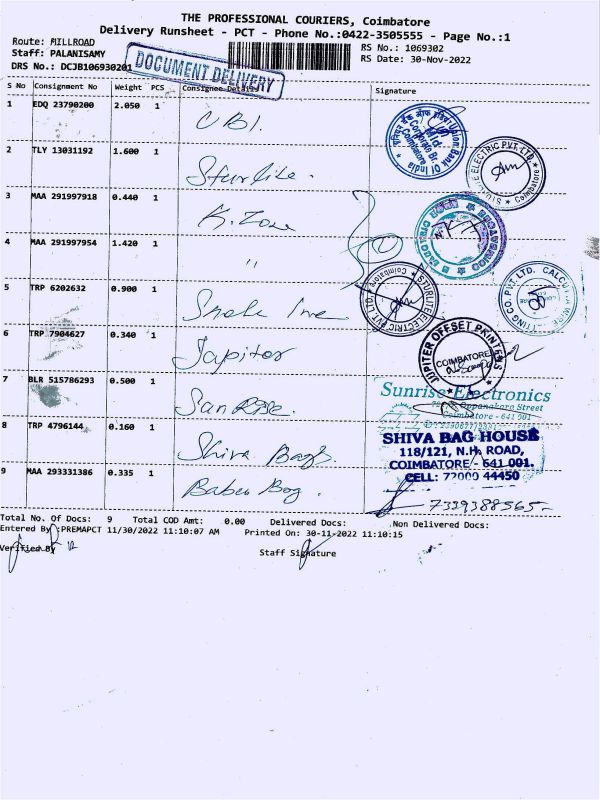 THE PROFESSIONAL COURIERS, Coimbatore
Delivery Runsheet - PCT - Phone No.:0422-3505555 - Page No.:1
Route: MILLROAD
RS No.: 1069302
Staff: PALANISAMY
RS Date: 30-Nov-2022
DRS No.: DCJB106930201
DOCUMENT DELIVERY
S No Consignment No Weight PCS Consignee Details Signature
1 EDQ 23790200 2.050 1 UBI.
Union Bank Of India
Corporate Br.
Coimbatore
2 TLY 13031192 1.600 1 Sturlite.
STURLITE ELECTRIC PVT. LTD. Coimbatore
3 MAA 291997918 0.440 1 K. Zone
4 MAA 291997954 1.420 1 "
5 TRP 6202632 0.900 1
STURLITE ELECTRIC PVT. LTD. Coimbatore
6 TRP 7904627 0.340 1 Jupiter
JUPITER OFFSET PRINTERS
COIMBATORE
7 BLR 515786293 0.500 1 SanRise.
Sunrise Electronics
Oppanakara Street
Coimbatore - 641 001
8 TRP 4796144 0.160 1 Shiva Bags
SHIVA BAG HOUSE
118/121, N.H. ROAD,
COIMBATORE - 641 001.
CELL: 72000 44450
9 MAA 293331386 0.335 1 Babu Bag.
7339388565-
Total No. Of Docs: 9 Total COD Amt: 0.00 Delivered Docs: Non Delivered Docs:
Entered By :PREMAPCT 11/30/2022 11:10:07 AM Printed On: 30-11-2022 11:10:15
Verified By Staff Signature